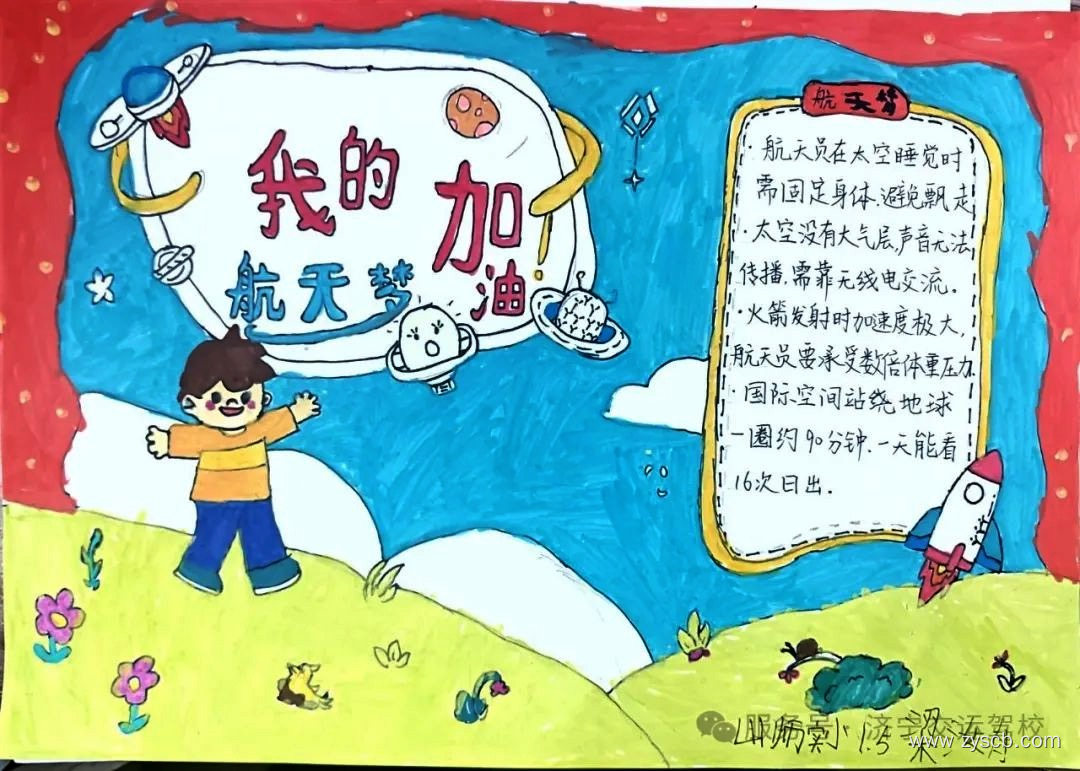 我的
加油!
航天梦
航天梦
·航天员在太空睡觉时
需固定身体.避免飘走
·太空没有大气层,声音无法
传播,需靠无线电交流.
·火箭发射时加速度极大,
航天员要承受数倍体重压力.
·国际空间站绕地球
一圈约90分钟.一天能看
16次日出.
服务号·济宁交运驾校
山师实小 1.5 梁
www.zyscb.com